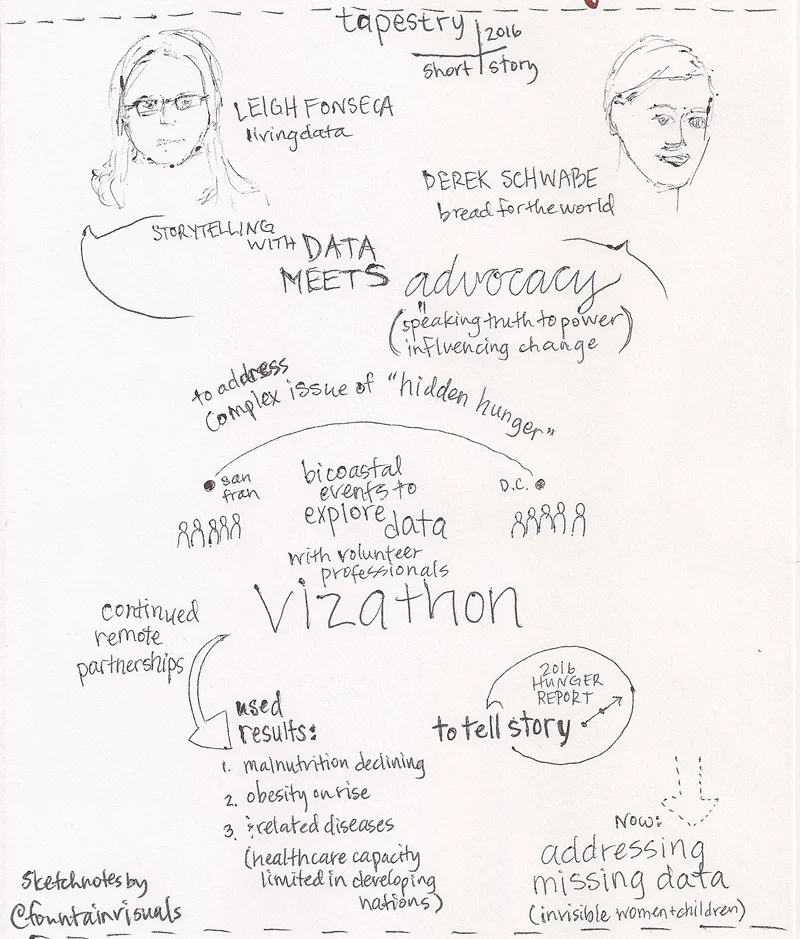 tapestry
2016
short story
LEIGH FONSECA
livingdata
DEREK SCHWABE
bread for the world
STORYTELLING
WITH DATA
MEETS advocacy
(speaking truth to power
influencing change)
to address
complex issue of "hidden hunger"
san
fran
bicoastal
events to
explore
data
D.C.
with volunteer
professionals
vizathon
continued
remote
partnerships
2016
HUNGER
REPORT
used
results:
to tell story
1. malnutrition declining
2. obesity on rise
3. & related diseases
(healthcare capacity
limited in developing
nations)
NOW:
addressing
missing data
(invisible women + children)
sketchnotes by
@fountainvisuals